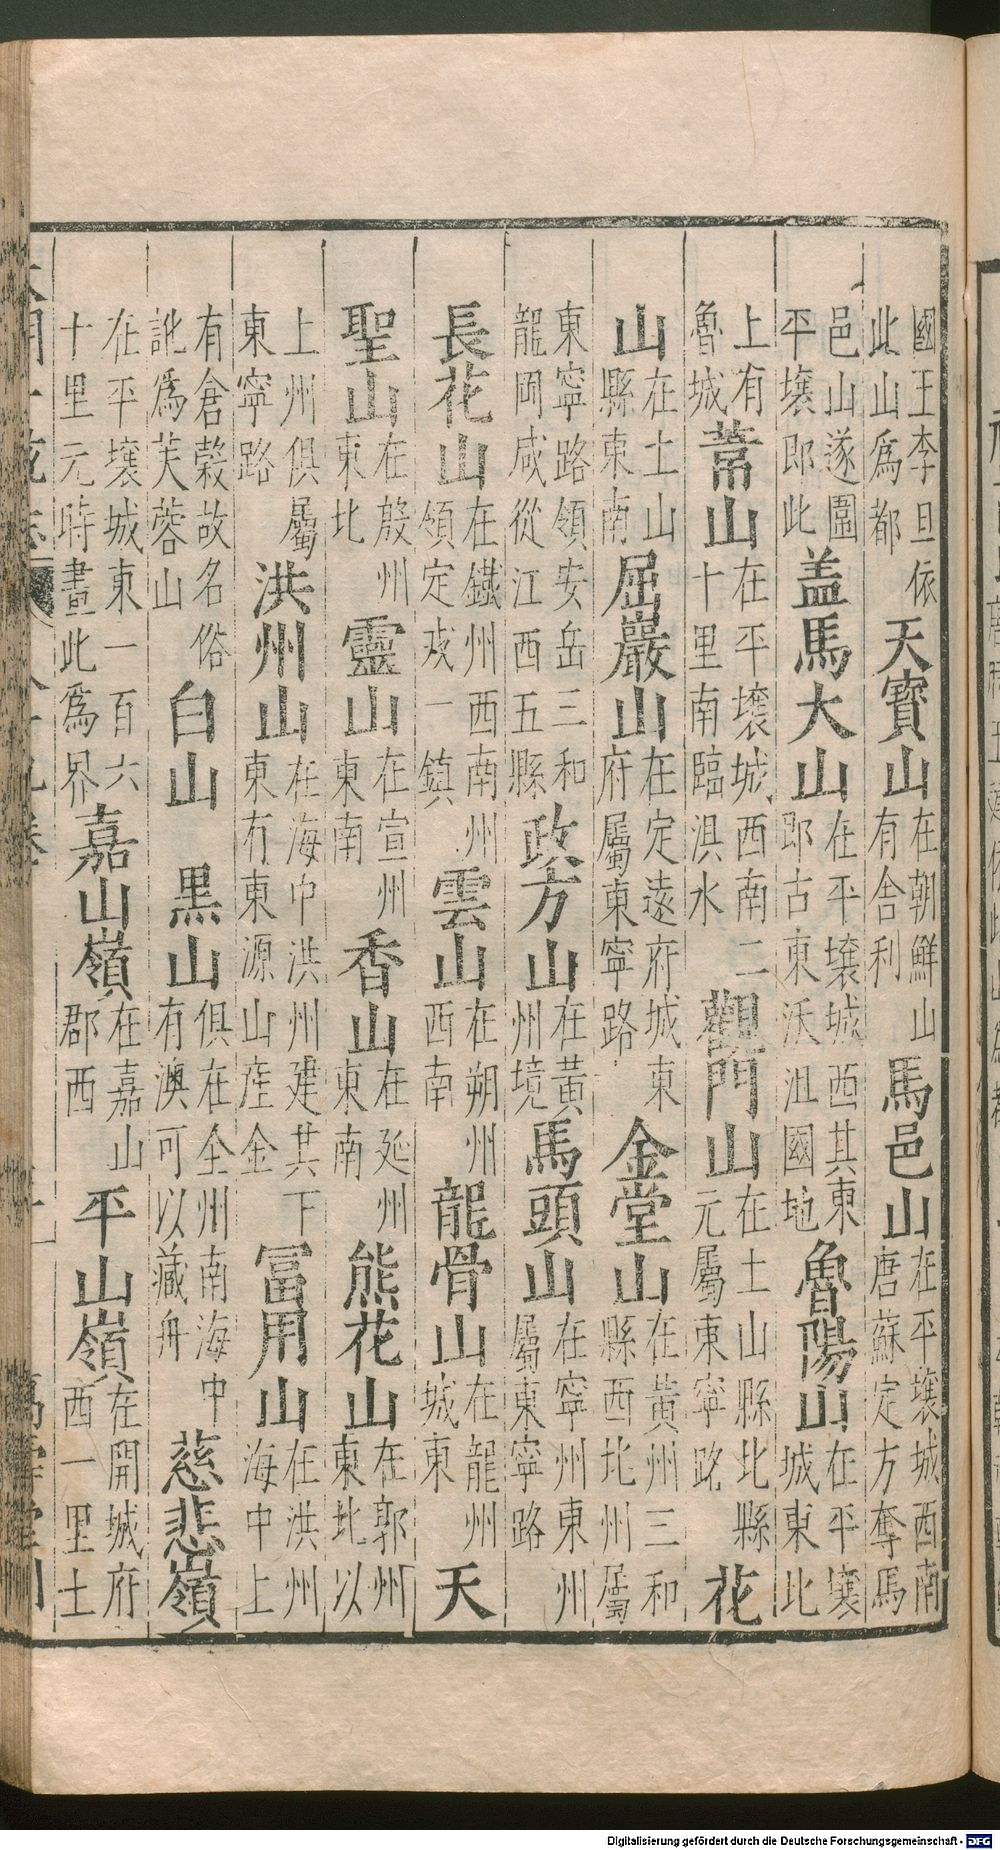 國王李旦依此山爲都天寶山在朝鮮山有舍利馬邑山在平壤城西南唐蘇定方奪馬
邑山遂圍平壤郎此盖馬大山在平壤城西其東郎古東沃沮國地魯陽山在平壤城東北
上有魯城山在平壤城西南二十里南臨浿水觀門山在土山縣北縣元屬東寧路花
山在土山縣東南屈巖山在定遠府城東府屬東寧路金堂山在黃州三和縣西北州屬
東寧路領安岳三和龍岡咸從江西五縣政方山在黃州境馬頭山在寧州東州屬東寧路
長花山在鐵州西南州領定戎一鎮雲山在朔州西南龍骨山在龍州城東天
聖山在殷州東北靈山在宣州東南香山在延州東南熊花山在郭州東北以
上州俱屬東寧路洪州山在海中洪州建其下東有東源山産金冨用山在洪州海中上
有倉穀故名俗訛爲芙蓉山白山黑山俱在全州南海中有澳可以藏舟慈悲嶺
在平壤城東一百六十里元時畫此爲界嘉山嶺在嘉山郡西平山嶺在開城府西一里土
Digitalisierung gefördert durch die Deutsche Forschungsgemeinschaft - DFG